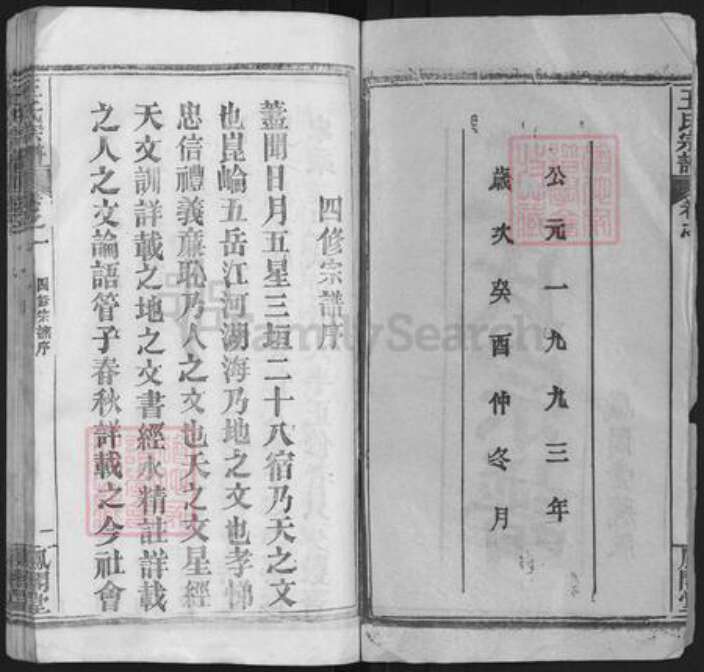 王氏宗譜
公元一九九三年
歲次癸酉仲冬月
四修宗譜序
蓋聞日月五星三垣二十八宿乃天之文
也崑崘五岳江河湖海乃地之文也孝悌
忠信禮義廉恥乃人之文也天之文星經
天文訓詳載之地之文書經水精註詳載
之人之文論語管子春秋詳載之今社會
王氏宗譜
卷之一
四修宗譜序
一
鳳閣堂
FamilySearch